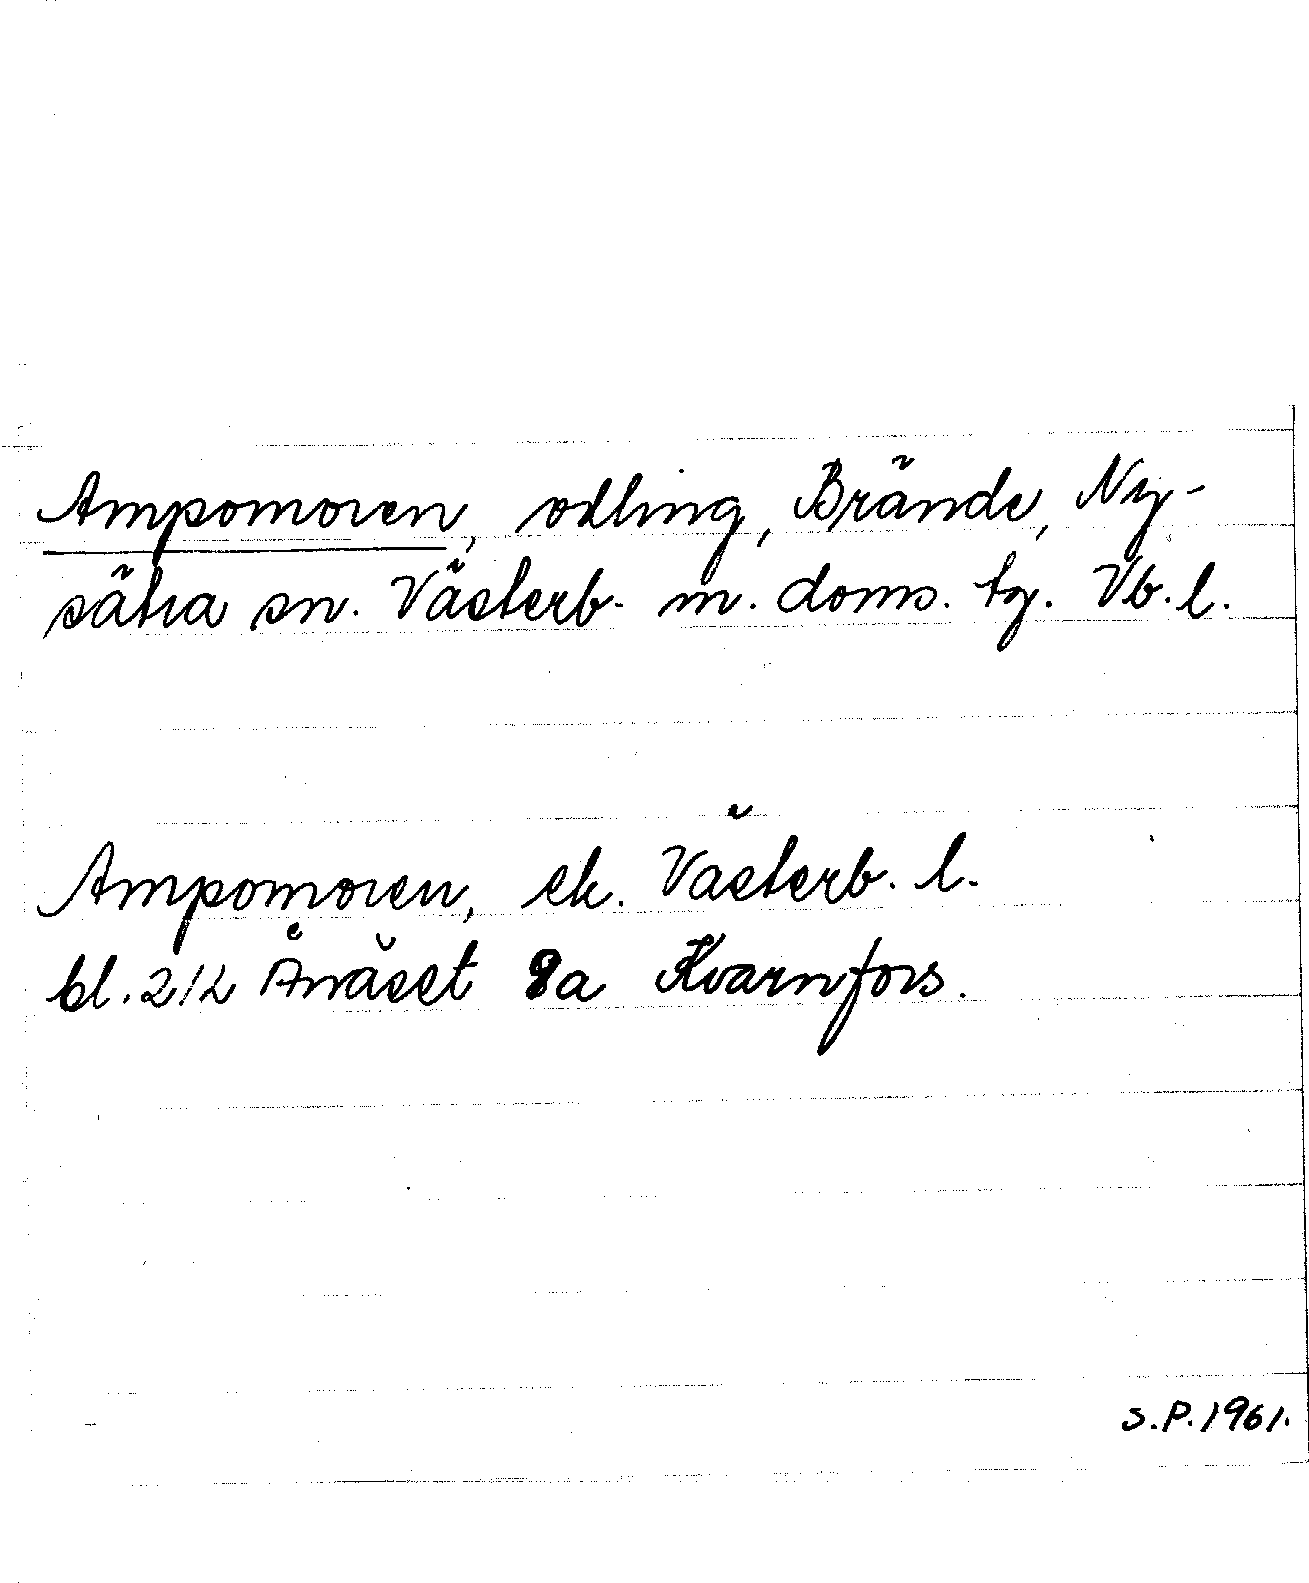 Ampomoren, odling, Brände, Ny-
sätra sn. Västerb. m. doms. tg. Vb. l.
Ampomoren, ek. Västerb. l.
bl. 212 Ånäset 8a Kvarnfors.
S.P. 1961.